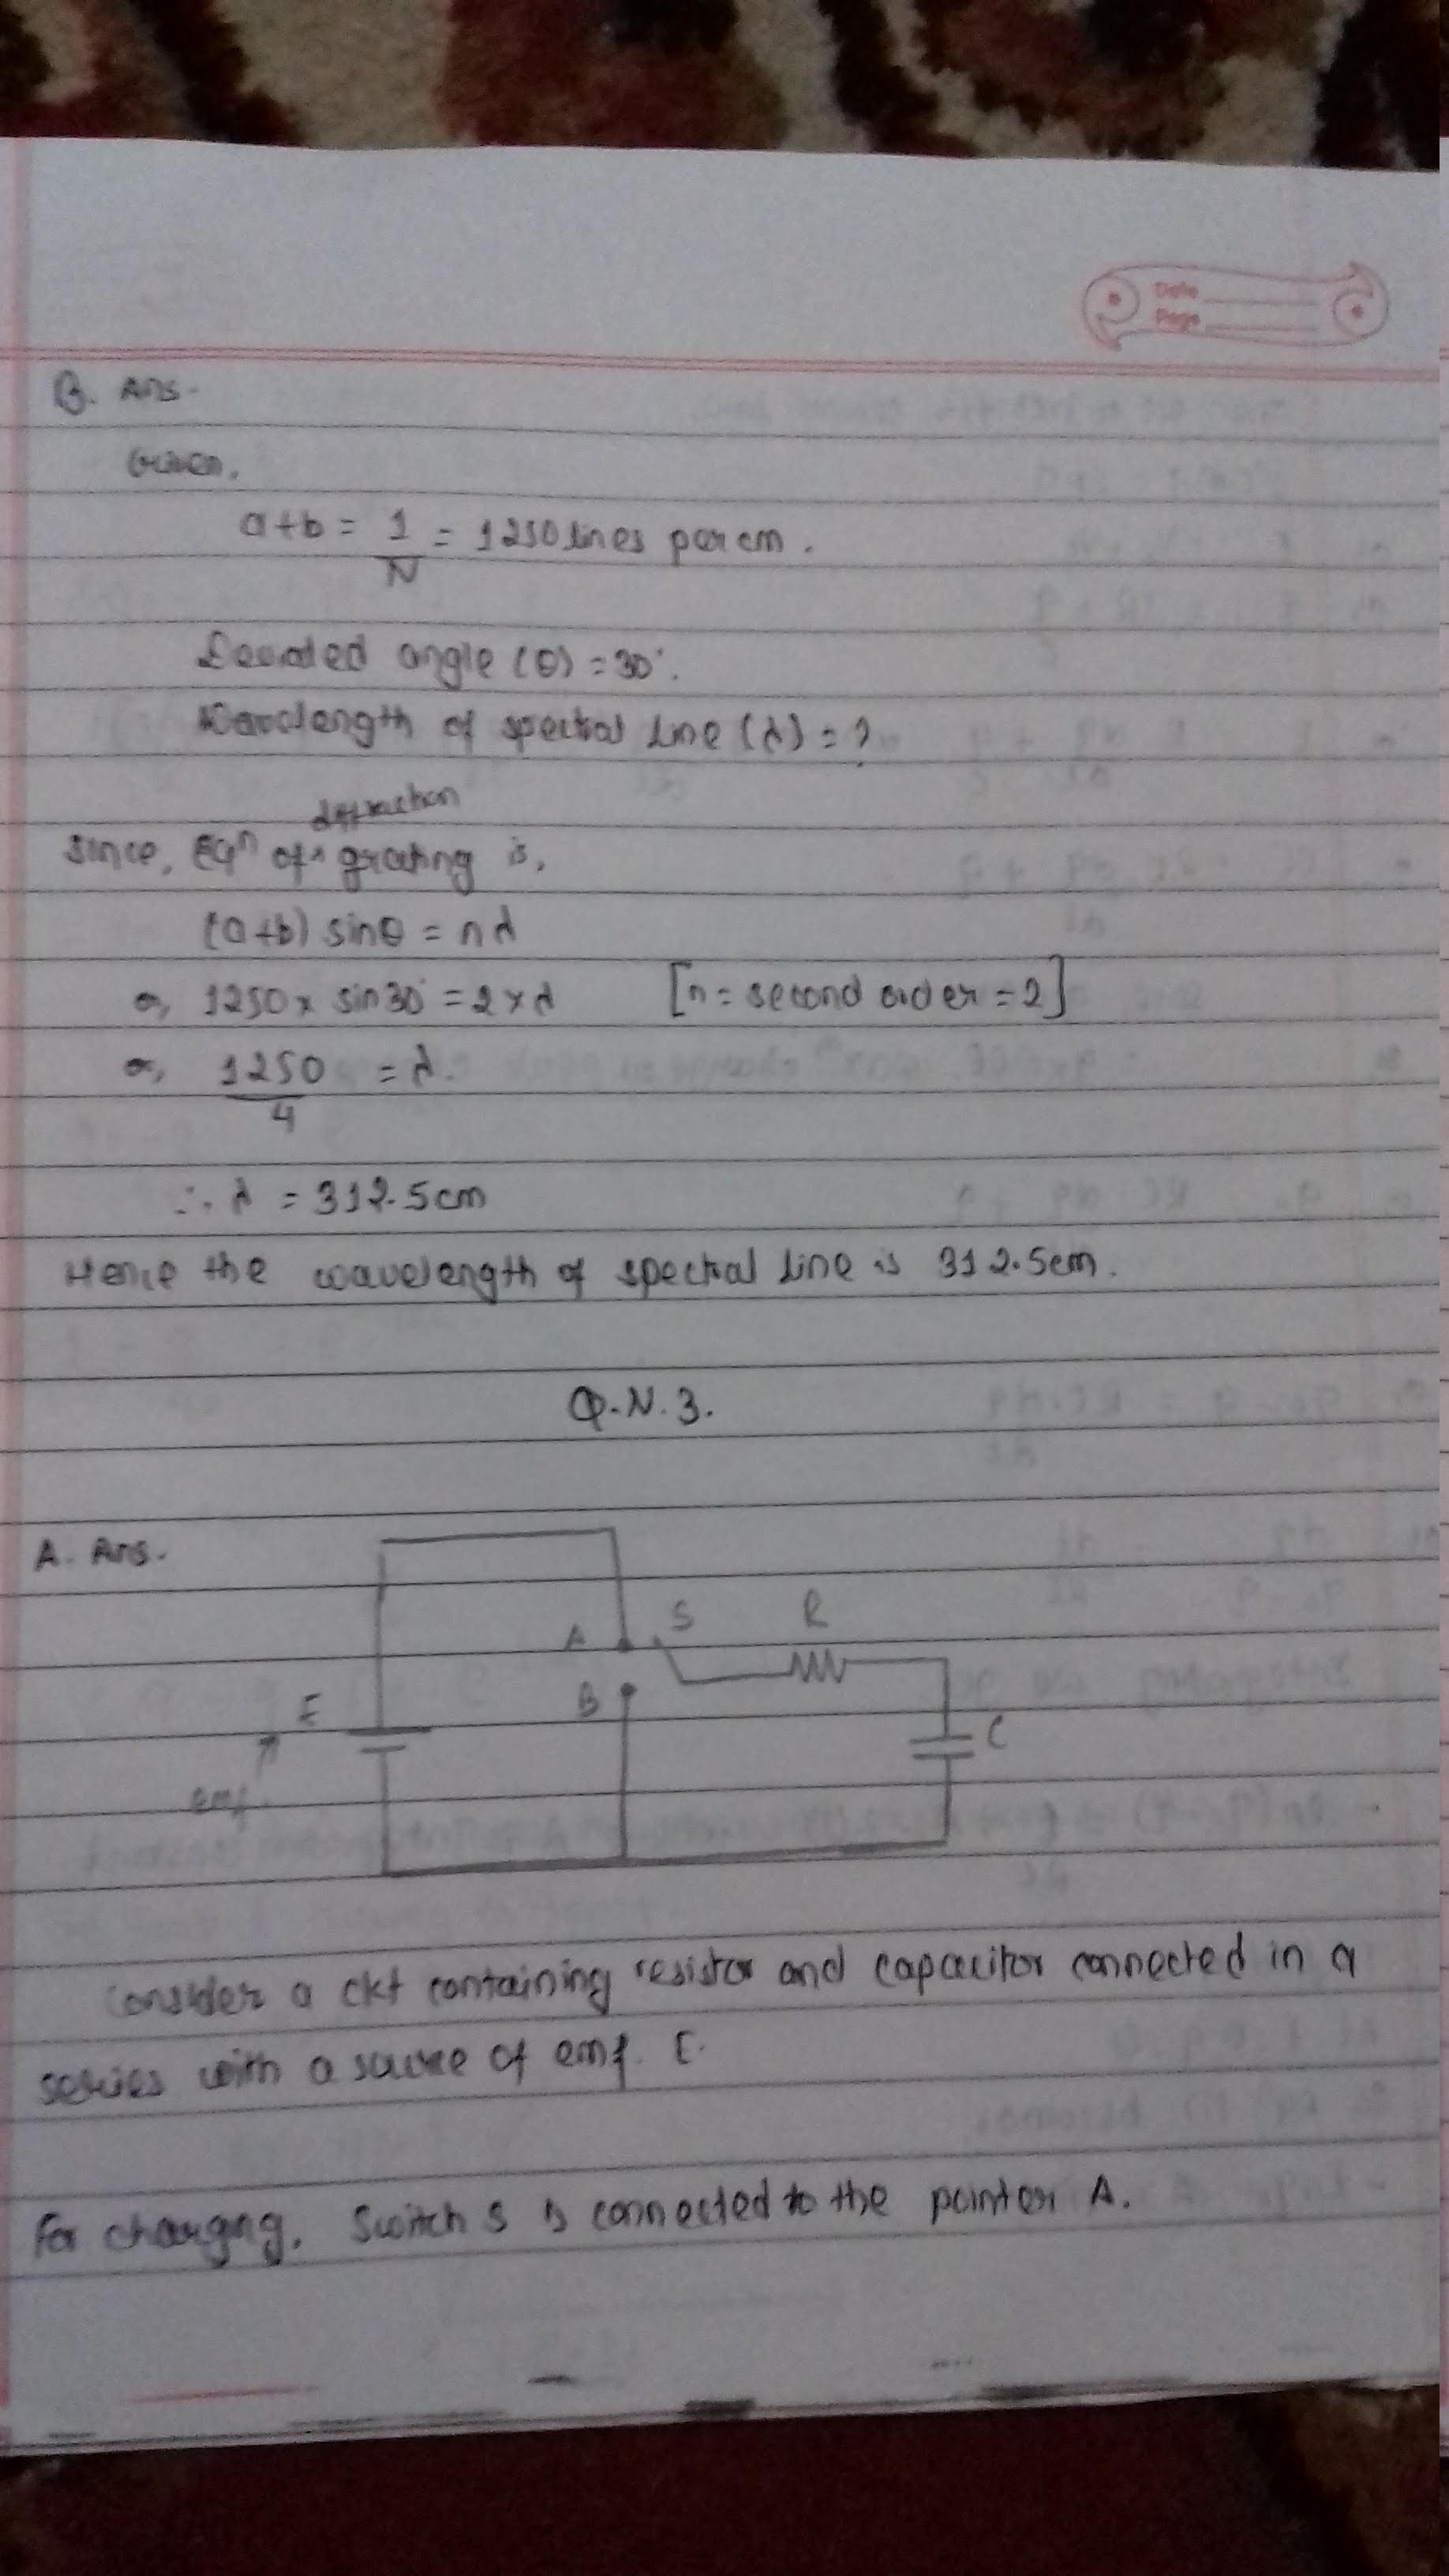 Date
Page
B. Ans.
Given,
a+b = 1/N = 1250 lines per cm.
Deviated angle (θ) = 30°.
Wavelength of spectral line (λ) = ?
diffraction
Since, Eqn of ^ grating is,
(a+b) sinθ = nλ
or, 1250 x sin30° = 2 x λ [n = second order = 2]
or, 1250/4 = λ.
∴ λ = 312.5cm
Hence the wavelength of spectral line is 312.5cm.
Q.N.3.
A. Ans.
S R
A
B
E
C
emf
Consider a ckt containing resistor and capacitor connected in a
series with a source of emf. E.
For charging, Switch S is connected to the pointer A.